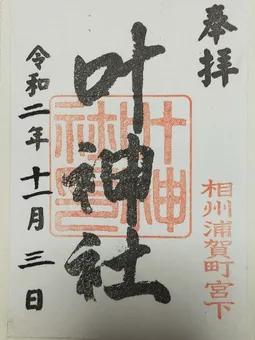 奉拝
相州浦賀町宮下
叶神社
叶神社印
令和二年十一月三日